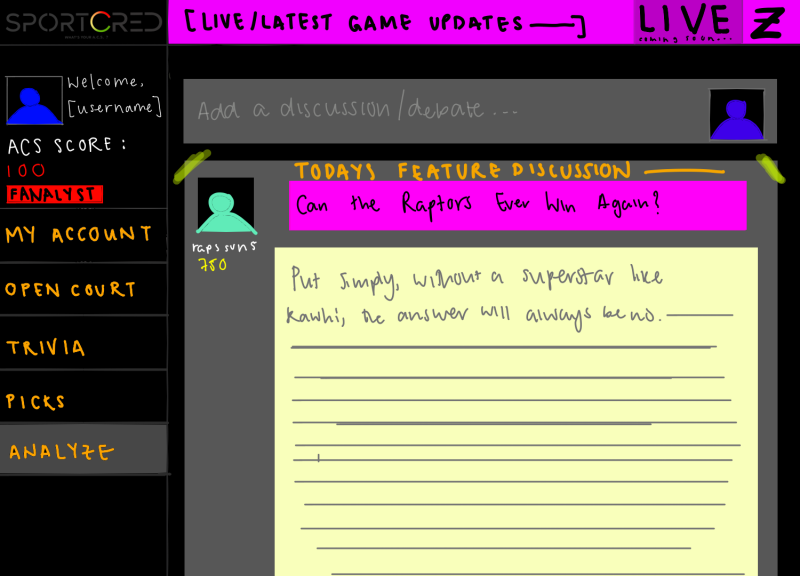 SPORTCRED
[LIVE/LATEST GAME UPDATES —]
LIVE
coming soon...
Z
Welcome,
[username]
ACS SCORE:
100
FANALYST
MY ACCOUNT
OPEN COURT
TRIVIA
PICKS
ANALYZE
Add a discussion/debate...
TODAYS FEATURE DISCUSSION
raps suns
750
Can the Raptors Ever Win Again?
Put simply, without a superstar like
Kawhi, the answer will always be no.